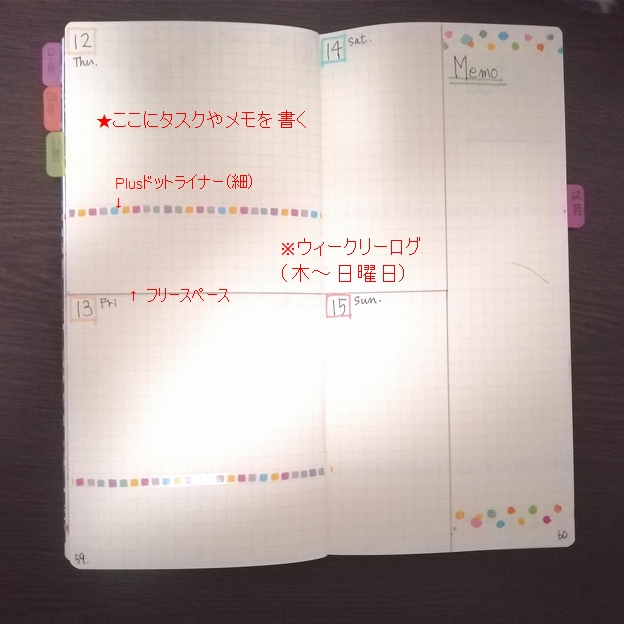 12
Thu.
★ここにタスクやメモを書く
Plusドットライナー(細)
↓
↑ フリースペース
13 Fri
14 sat.
※ウィークリーログ
(木～日曜日)
15 sun.
Memo.
12月
59
60